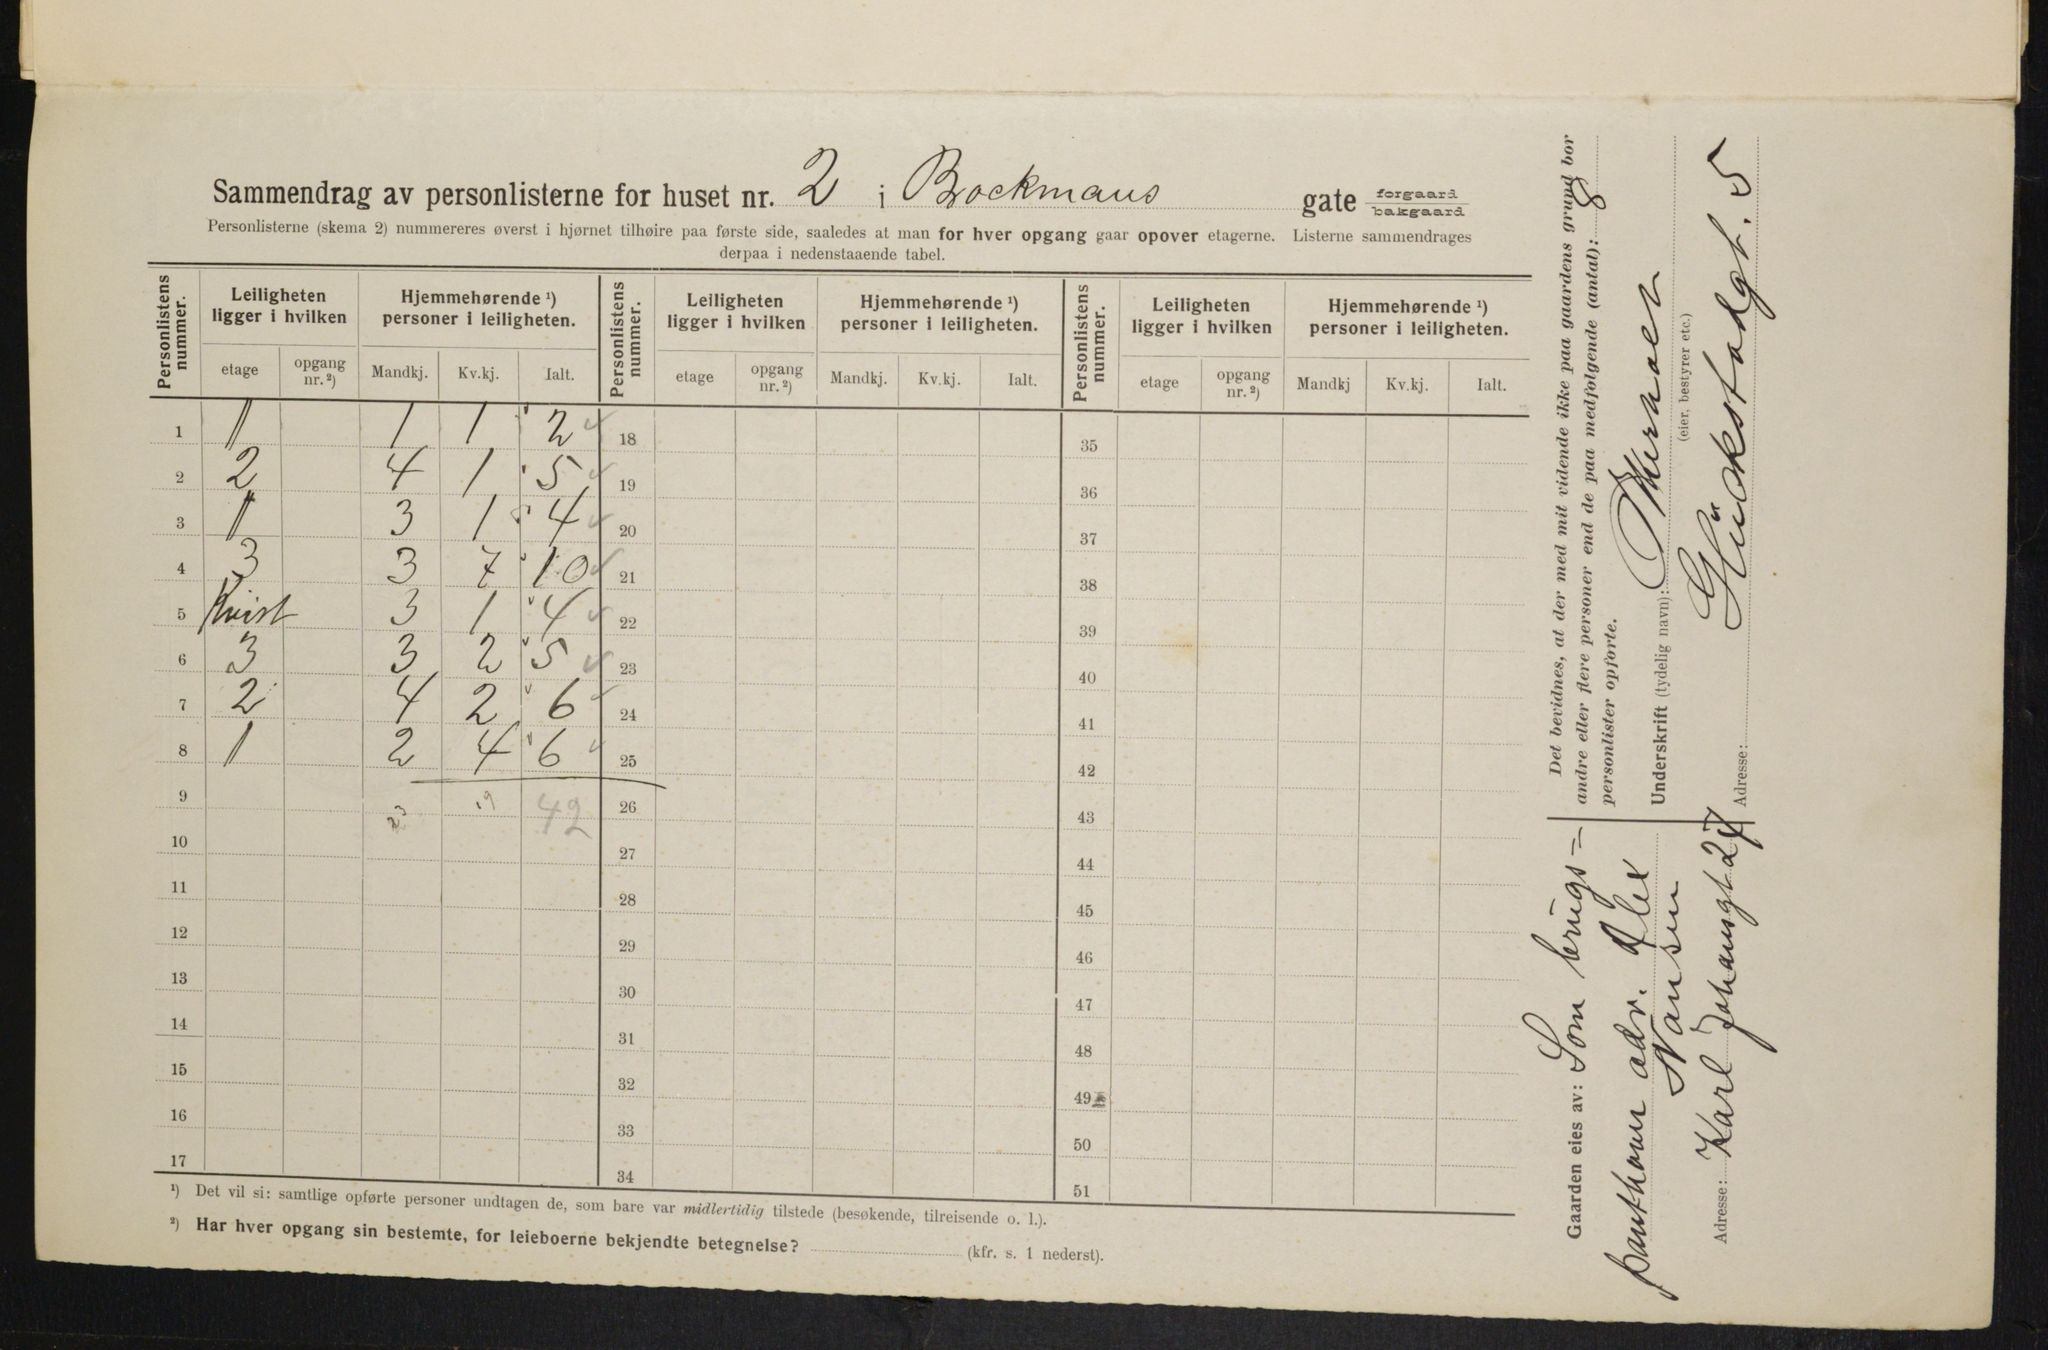 Sammendrag av personlisterne for huset nr. 2 i Bockmans gate forgaard bakgaard
Personlisterne (skema 2) nummereres øverst i hjørnet tilhøire paa første side, saaledes at man for hver opgang gaar opover etagerne. Listerne sammendrages
derpaa i nedenstaaende tabel.
Personlistens nummer. Leiligheten ligger i hvilken Hjemmehørende ¹) personer i leiligheten. Personlistens nummer. Leiligheten ligger i hvilken Hjemmehørende ¹) personer i leiligheten. Personlistens nummer. Leiligheten ligger i hvilken Hjemmehørende ¹) personer i leiligheten.
etage opgang nr. ²) Mandkj. Kv.kj. Ialt. etage opgang nr. ²) Mandkj. Kv.kj. Ialt. etage opgang nr. ²) Mandkj Kv.kj. Ialt.
1 1 1 1 2 18 35
2 2 4 1 5 19 36
3 1 3 1 4 20 37
4 3 3 7 10 21 38
5 Kvist 3 1 4 22 39
6 3 3 2 5 23 40
7 2 4 2 6 24 41
8 1 2 4 6 25 42
9 23 19 42 26 43
10 27 44
11 28 45
12 29 46
13 30 47
14 31 48
15 32 49
16 33 50
17 34 51
¹) Det vil si: samtlige opførte personer undtagen de, som bare var midlertidig tilstede (besøkende, tilreisende o. l.).
²) Har hver opgang sin bestemte, for leieboerne bekjendte betegnelse? (kfr. s. 1 nederst).
Det bevidnes, at der med mit vidende ikke paa gaardens grund bor
andre eller flere personer end de paa medfølgende (antal): 8
personlister opførte.
Underskrift (tydelig navn):
(eier, bestyrer etc.)
Adresse: Glückstadgt. 5
Gaarden eies av: Som brugs-
panthaver adv. Alex
Nansen
Adresse: Karl Johansgt 27